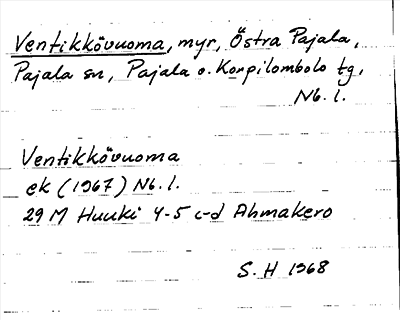 Ventikkövuoma, myr, Östra Pajala,
Pajala sn, Pajala o. Korpilombolo tg,
Nb. l.
Ventikkövuoma
ek (1967) Nb. l.
29 M Huuki 4-5 c-d Ahmakero
S. H 1968